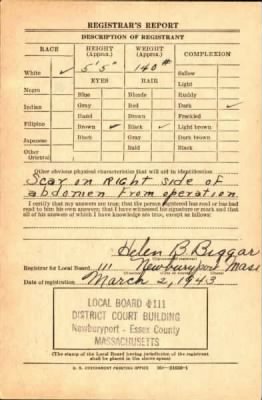 REGISTRAR'S REPORT
DESCRIPTION OF REGISTRANT
RACE HEIGHT (Approx.) WEIGHT (Approx.) COMPLEXION
White ✓ 5' 5" 140# Sallow
EYES HAIR Light
Negro Blue Blonde Ruddy
Indian Gray Red Dark ✓
Hazel Brown Freckled
Filipino Brown ✓ Black ✓ Light brown
Japanese Black Gray Dark brown
Bald Black
Other
Oriental
Other obvious physical characteristics that will aid in identification
Scar on Right side of
abdomen from operation
I certify that my answers are true; that the person registered has read or has had
read to him his own answers; that I have witnessed his signature or mark and that
all of his answers of which I have knowledge are true, except as follows:
Helen B. Biggar
Registrar for Local Board 111 Newburyport Mass
Date of registration March 2, 1943
LOCAL BOARD #111
DISTRICT COURT BUILDING
Newburyport - Essex County
MASSACHUSETTS
(The stamp of the Local Board having jurisdiction of the registrant
shall be placed in the above space)
U. S. GOVERNMENT PRINTING OFFICE